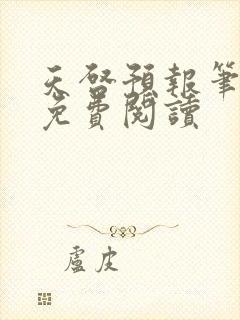 天啓預報筆
免費閱讀
盧皮